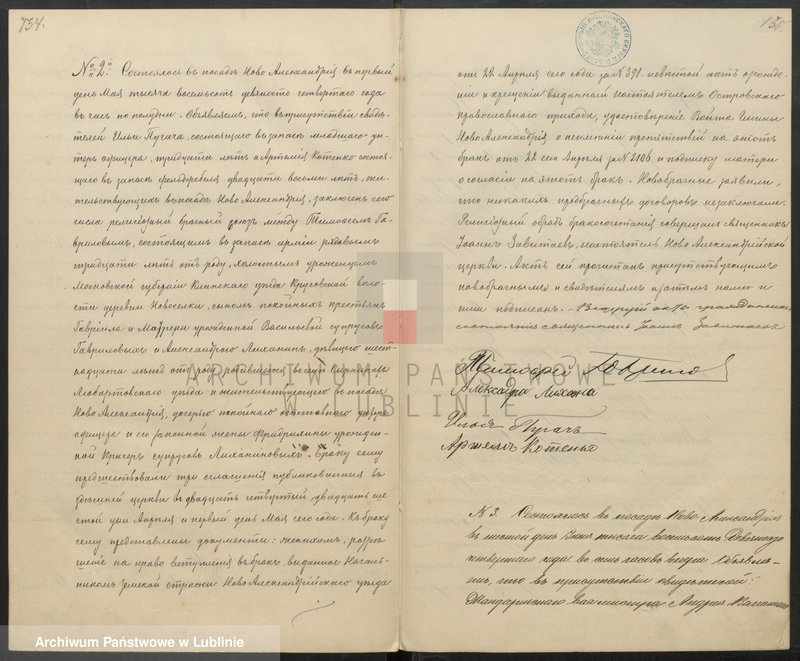 734.
№ 2й. Состоялось въ посадѣ Ново Александріи въ первый
день Мая тысяча восемьсотъ девяносто четвертаго года
въ часъ по полудни. Объявляемъ, что въ присутствіи свидѣ-
телей Ильи Пугача, состоящаго въ запасѣ младшаго ун-
теръ офицера, тридцати лѣтъ и Артемія Котенко состоя-
щаго въ запасѣ фельдфебеля двадцати восьми лѣтъ, жи-
тельствующихъ въ посадѣ Ново Александріи, заключенъ сего
числа религіозный брачный союзъ между Тимофеемъ Га-
вриловымъ, состоящимъ въ запасѣ арміи рядовымъ
тридцати лѣтъ отъ роду, холостымъ уроженцемъ
Московской губерніи Клинскаго уѣзда Круговской воло-
сти деревни Новоселки, сыномъ покойныхъ крестьянъ
Гавріила и Мавры урожденной Васильевой супруговъ
Гавриловыхъ и Александрою Лиханинъ, дѣвицею шест-
надцати лѣтъ отъ роду, родившеюся
Любартовскаго уѣзда и жительствующею въ посадѣ
Ново Александріи, дочерью покойнаго отставнаго унтеръ
офицера и его законной жены Фридрихины урожден-
ной Кригеръ супруговъ Лиханиныхъ. Браку сему
предшествовали три оглашенія публикованныя въ
здѣшней церкви въ двадцать четвертый, двадцать ше-
стой дни Апрѣля и первый день Мая сего года. Къ браку
сему представлены документы: женихомъ, разрѣ-
шеніе на право вступленія въ бракъ выданное Началь-
никомъ Земской стражи Ново Александрійскаго уѣзда
135.
отъ 22 Апрѣля сего года за № 391. невѣстой актъ о рожде-
ніи и крещеніи выданный настоятелемъ Островскаго
православнаго прихода, удостовѣреніе Войта Гмины
Ново Александрія о неимѣніи препятствій на этотъ
бракъ отъ 22 сего Апрѣля за № 2106 и подписку матери
о согласіи на этотъ бракъ. Новобрачные заявили,
что никакихъ предбрачныхъ договоровъ не заключали.
Религіозный обрядъ бракосочетанія совершалъ священникъ
Іоаннъ Завитаевъ, настоятель Ново Александрійской
церкви. Актъ сей прочитанъ присутствующимъ
новобрачнымъ и свидѣтелямъ и затѣмъ нами и
ими подписанъ. Ведущій акты гражданскаго
состоянія священникъ Іоаннъ Завитаевъ
Тимофей Гаврилов
Александра Лихана
Илья Пугачъ
Артемъ Котенко
№ 3. Состоялось въ посадѣ Ново Александріи
въ день тысяча восемьсотъ девяносто
четвертаго года въ часовъ вечера Объявля-
емъ, что въ присутствіи свидѣтелей:
Жандармскаго Вахмистра Андрея
ARCHIWUM PAŃSTWOWE
W LUBLINIE
Archiwum Państwowe w Lublinie